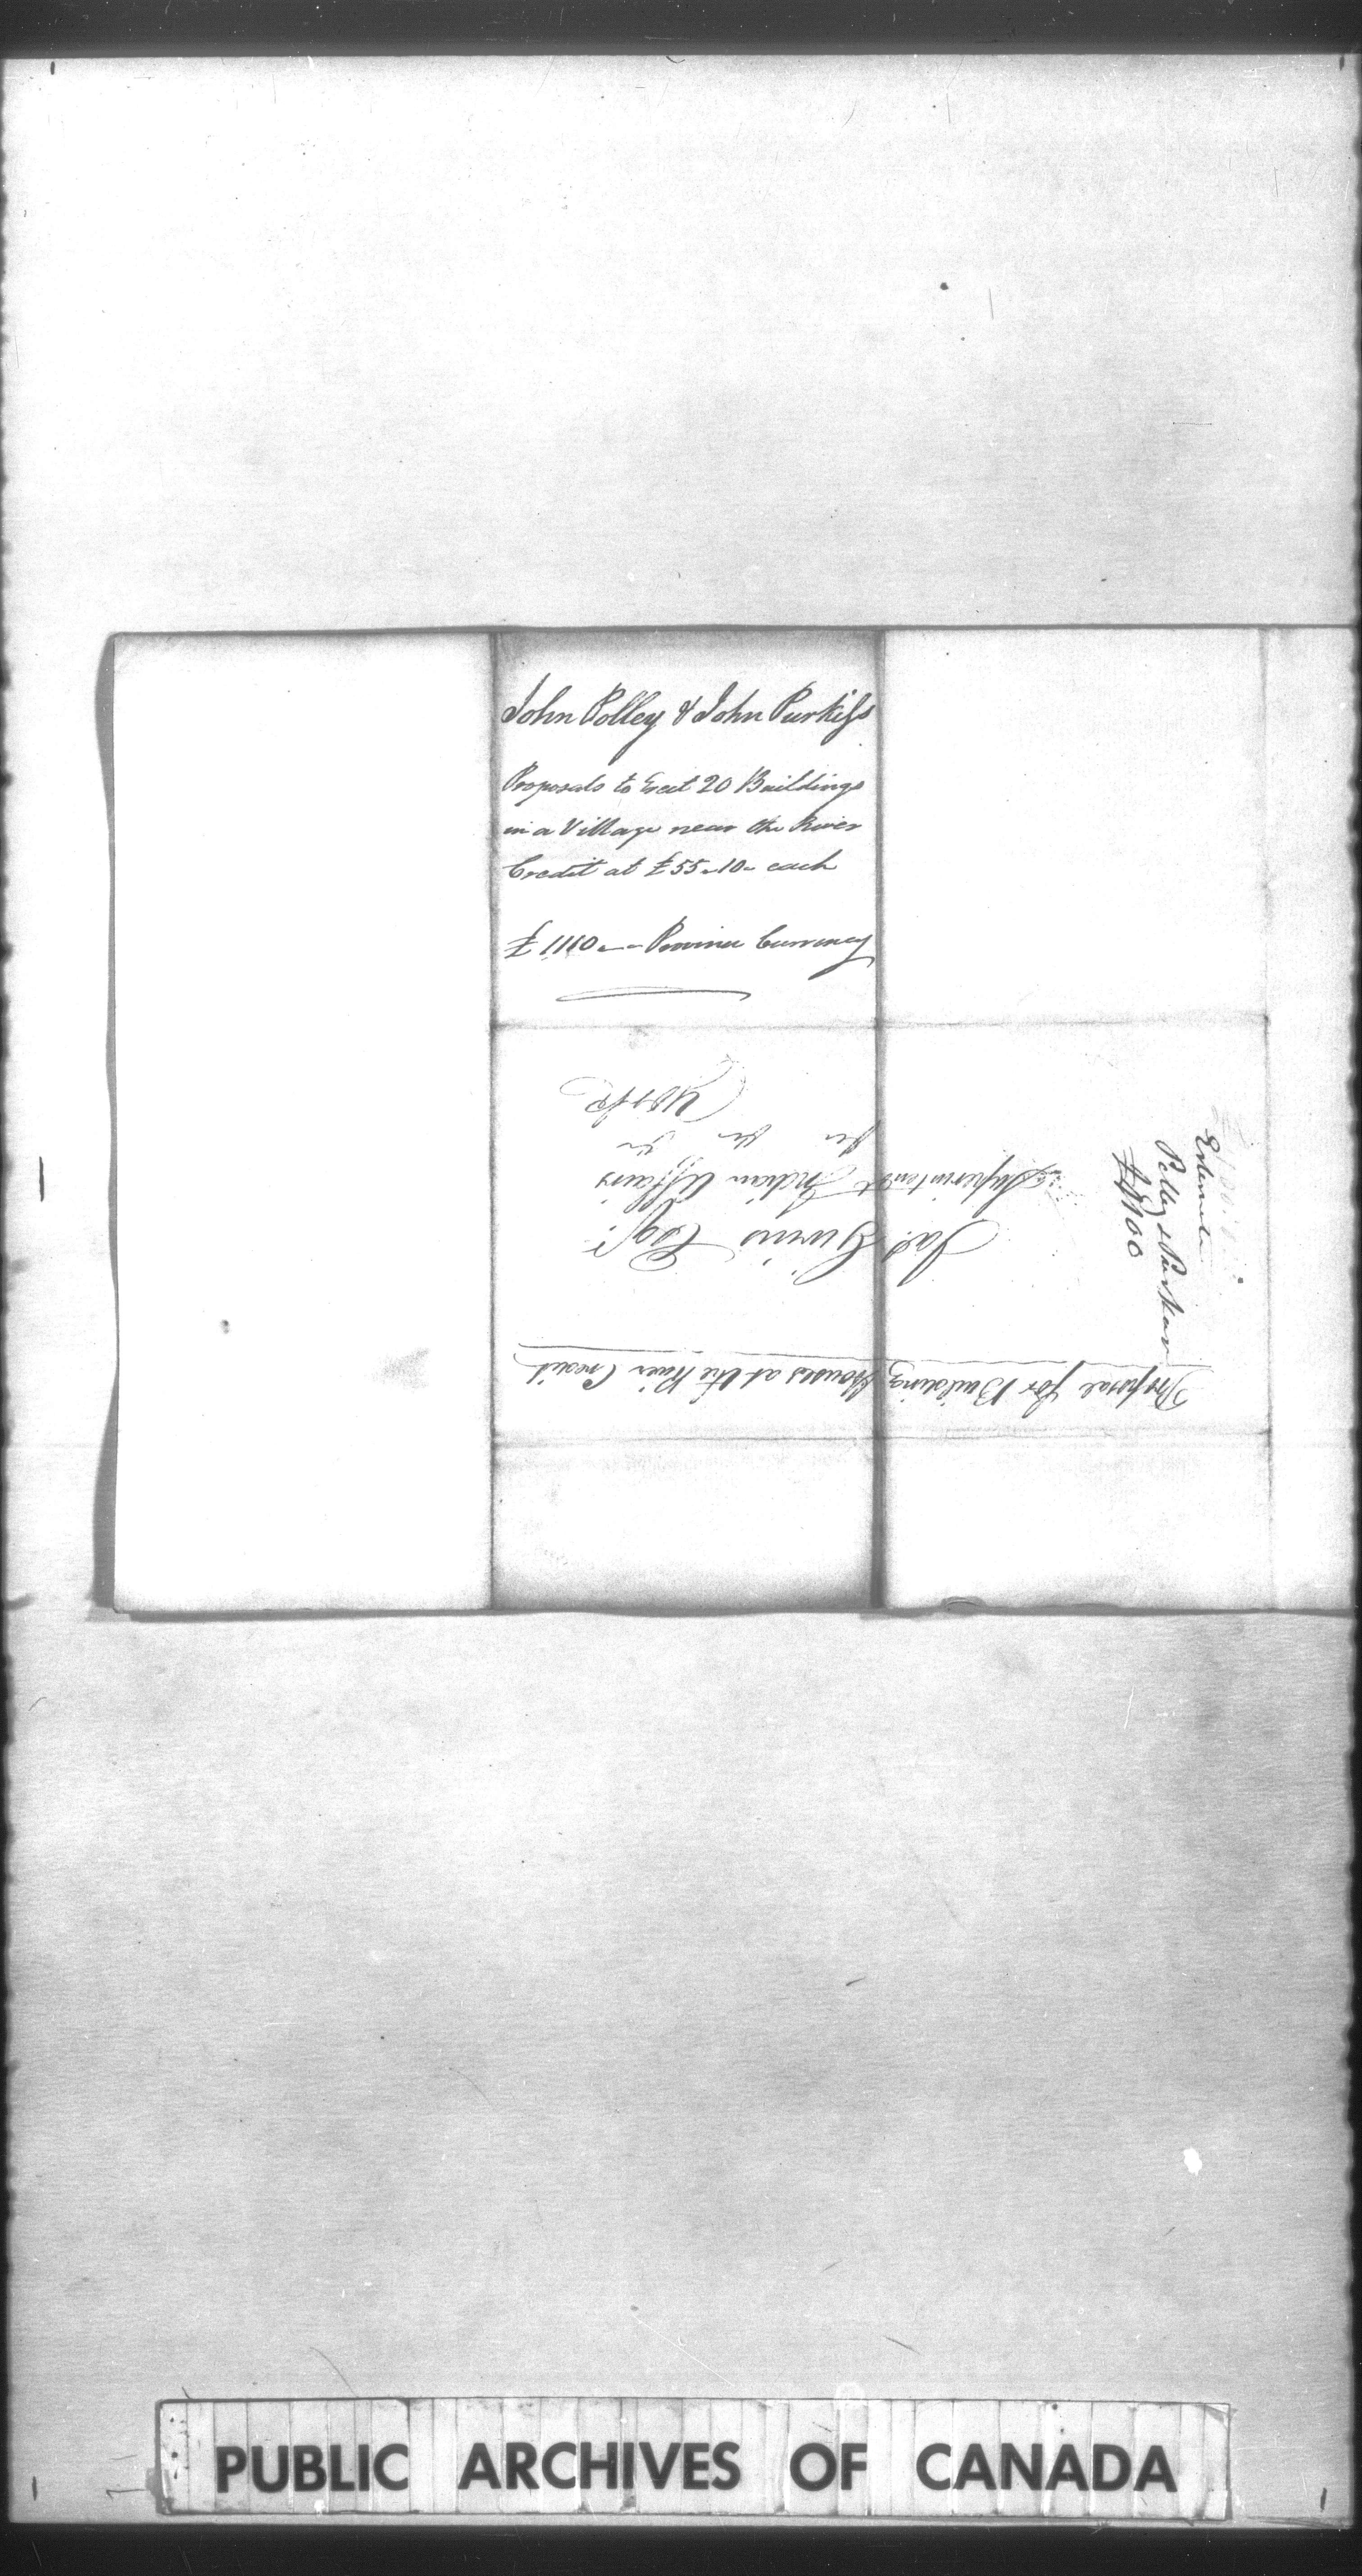 John Polley & John Purkiss
Proposals to Erect 20 Buildings
in a Village near the River
Credit at £55-10- each
£1110-- Province Currency
Proposal for Building Houses at the River Credit
Jas. Givins Esqr.
Superintendt Indian Affairs
York
Estimate
Polley & Purkess
PUBLIC ARCHIVES OF CANADA